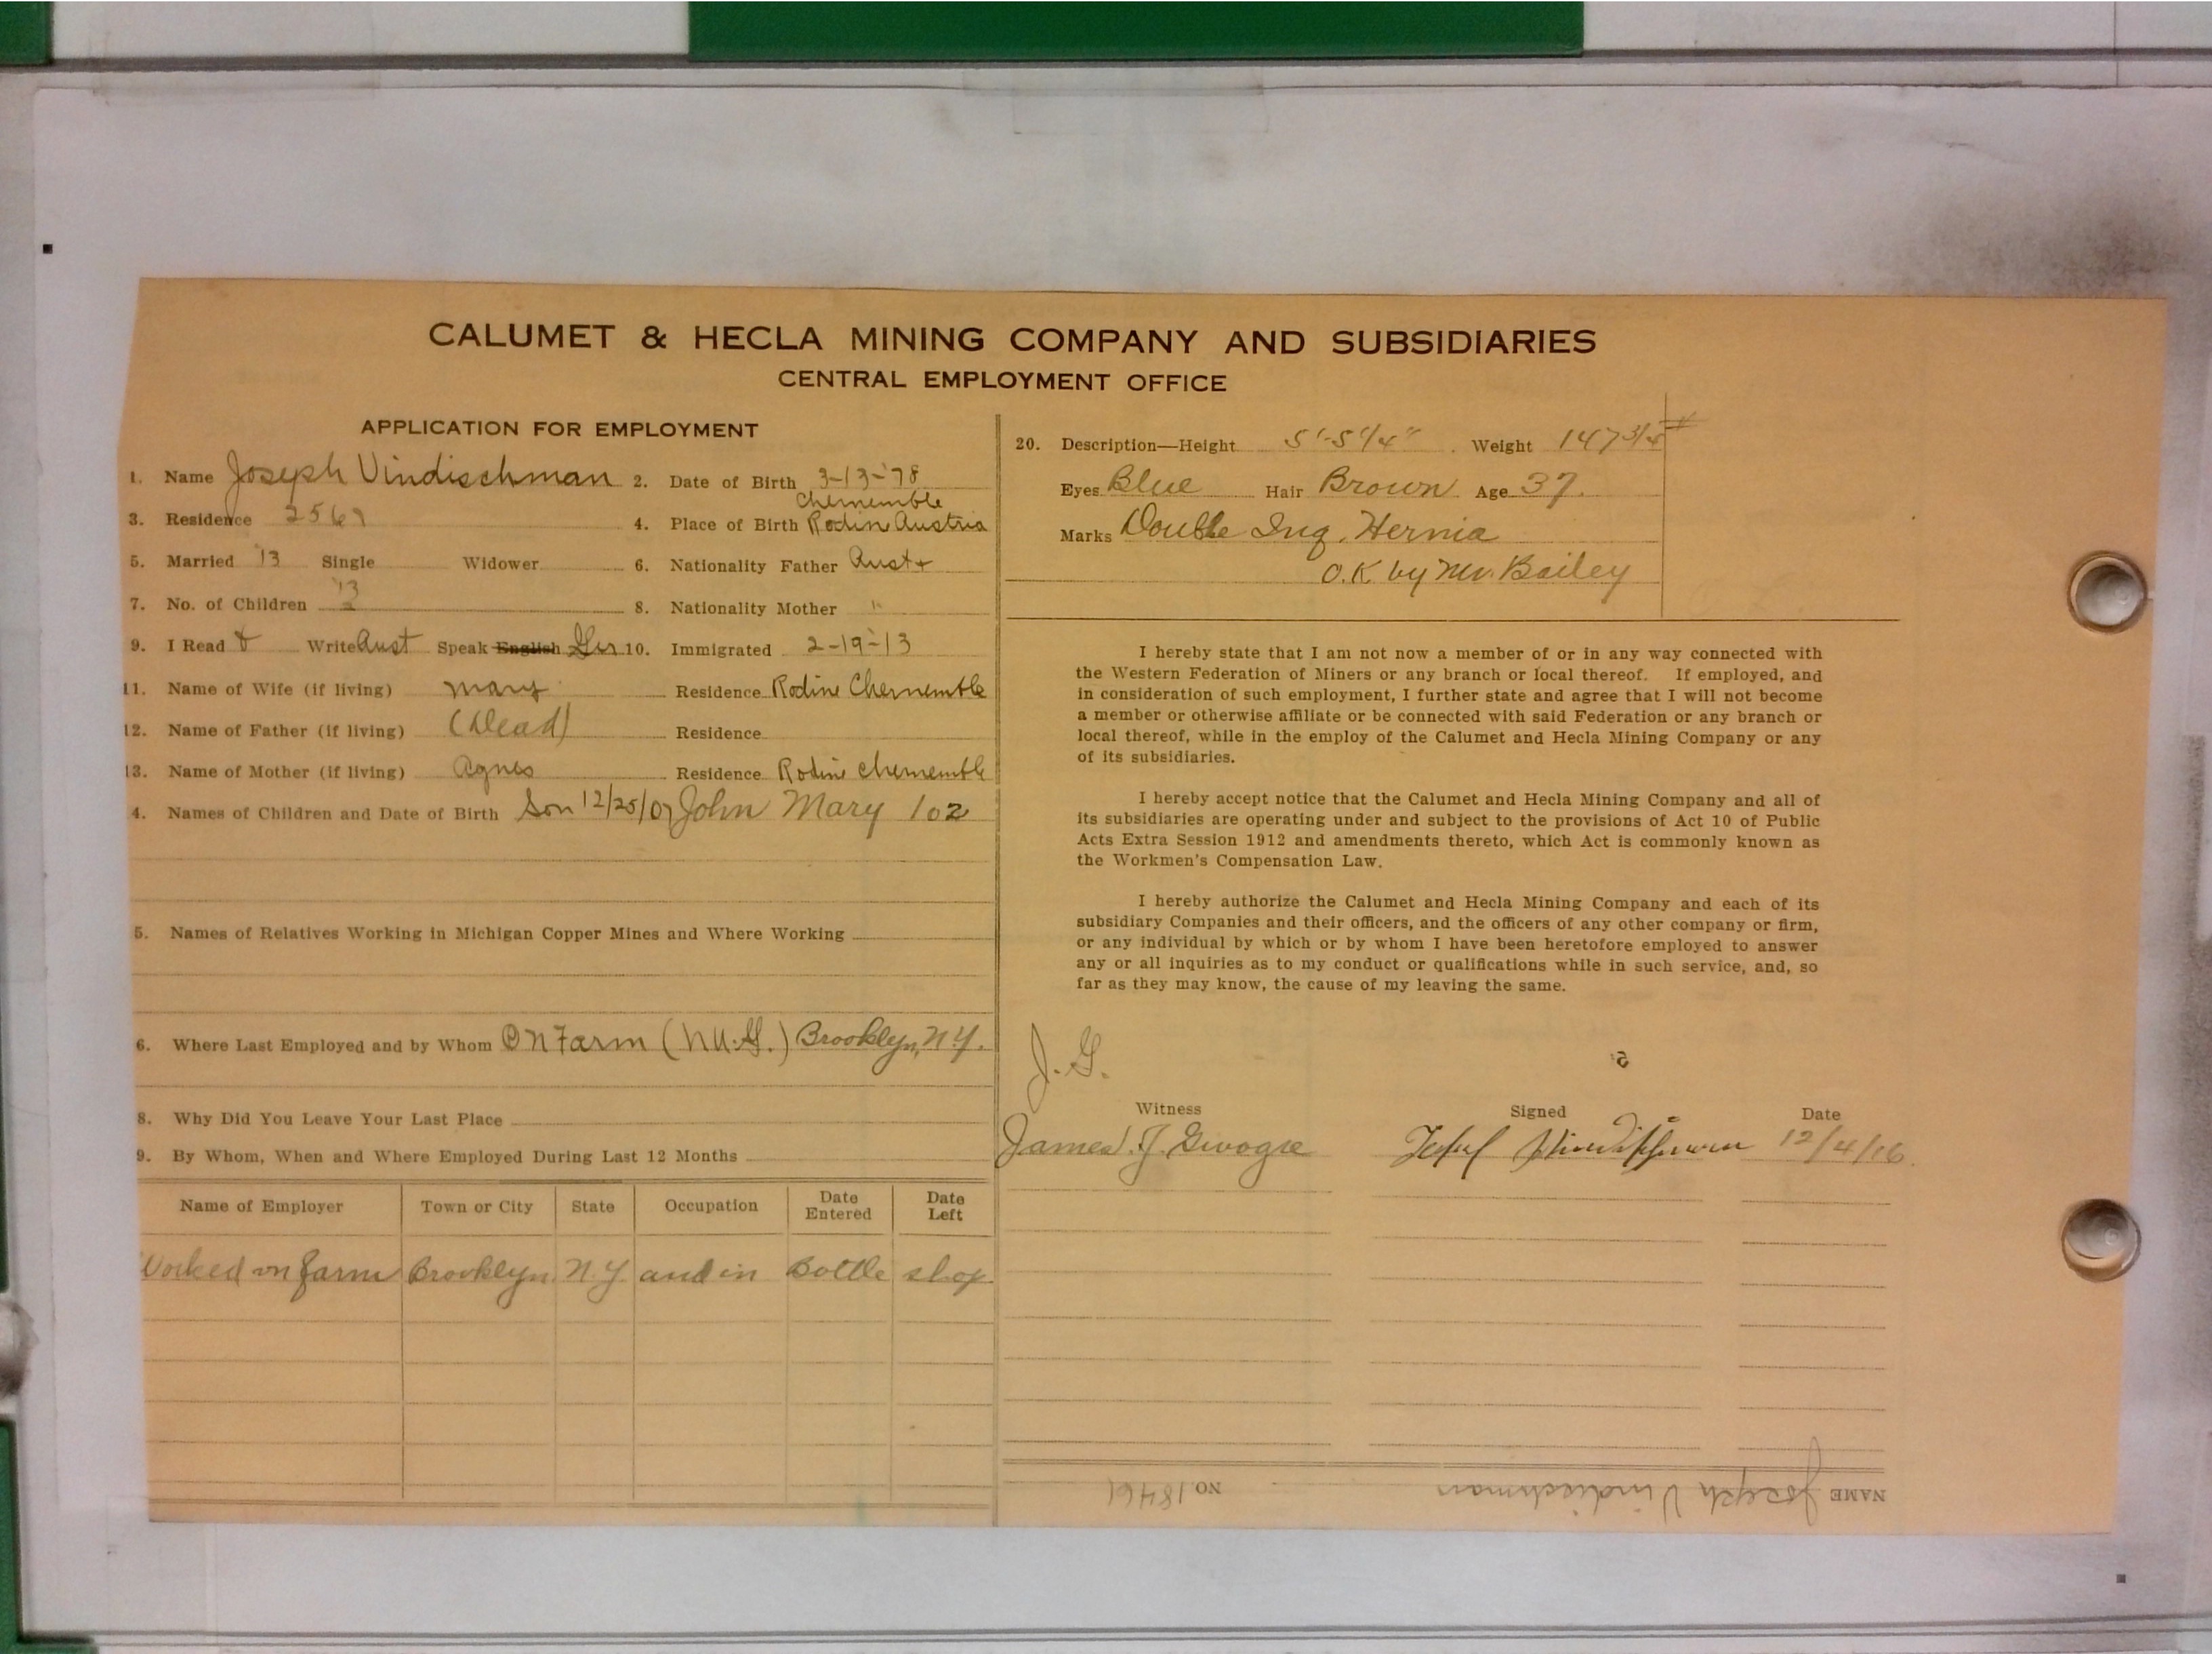 CALUMET & HECLA MINING COMPANY AND SUBSIDIARIES
CENTRAL EMPLOYMENT OFFICE
APPLICATION FOR EMPLOYMENT
1. Name Joseph Vindischman 2. Date of Birth 3-13-'78
Chernemble
3. Residence 2569 4. Place of Birth Rodin Austria
5. Married '13 Single Widower 6. Nationality Father Aust
'13
7. No. of Children 2 8. Nationality Mother "
9. I Read & Write Aust Speak English Ger 10. Immigrated 2-19-'13
11. Name of Wife (if living) Mary Residence Rodine Chernemble
12. Name of Father (if living) (Dead) Residence
13. Name of Mother (if living) Agnes Residence Rodine Chernemble
4. Names of Children and Date of Birth Son 12/25/07 John Mary
5. Names of Relatives Working in Michigan Copper Mines and Where Working
6. Where Last Employed and by Whom On Farm Brooklyn, N.Y.
8. Why Did You Leave Your Last Place
9. By Whom, When and Where Employed During Last 12 Months
Name of Employer Town or City State Occupation Date Entered Date Left
Worked on farm Brooklyn N.Y and in Bottle shop
20. Description—Height 5'-5 1/4" Weight 147 3/4 #
Eyes Blue Hair Brown Age 37.
Marks Double Ing. Hernia
O.K. by Mr. Bailey
I hereby state that I am not now a member of or in any way connected with
the Western Federation of Miners or any branch or local thereof. If employed, and
in consideration of such employment, I further state and agree that I will not become
a member or otherwise affiliate or be connected with said Federation or any branch or
local thereof, while in the employ of the Calumet and Hecla Mining Company or any
of its subsidiaries.
I hereby accept notice that the Calumet and Hecla Mining Company and all of
its subsidiaries are operating under and subject to the provisions of Act 10 of Public
Acts Extra Session 1912 and amendments thereto, which Act is commonly known as
the Workmen's Compensation Law.
I hereby authorize the Calumet and Hecla Mining Company and each of its
subsidiary Companies and their officers, and the officers of any other company or firm,
or any individual by which or by whom I have been heretofore employed to answer
any or all inquiries as to my conduct or qualifications while in such service, and, so
far as they may know, the cause of my leaving the same.
J. G.
Witness Signed Date
James J. 12/4/16
NAME Joseph Vindischman NO. 18461